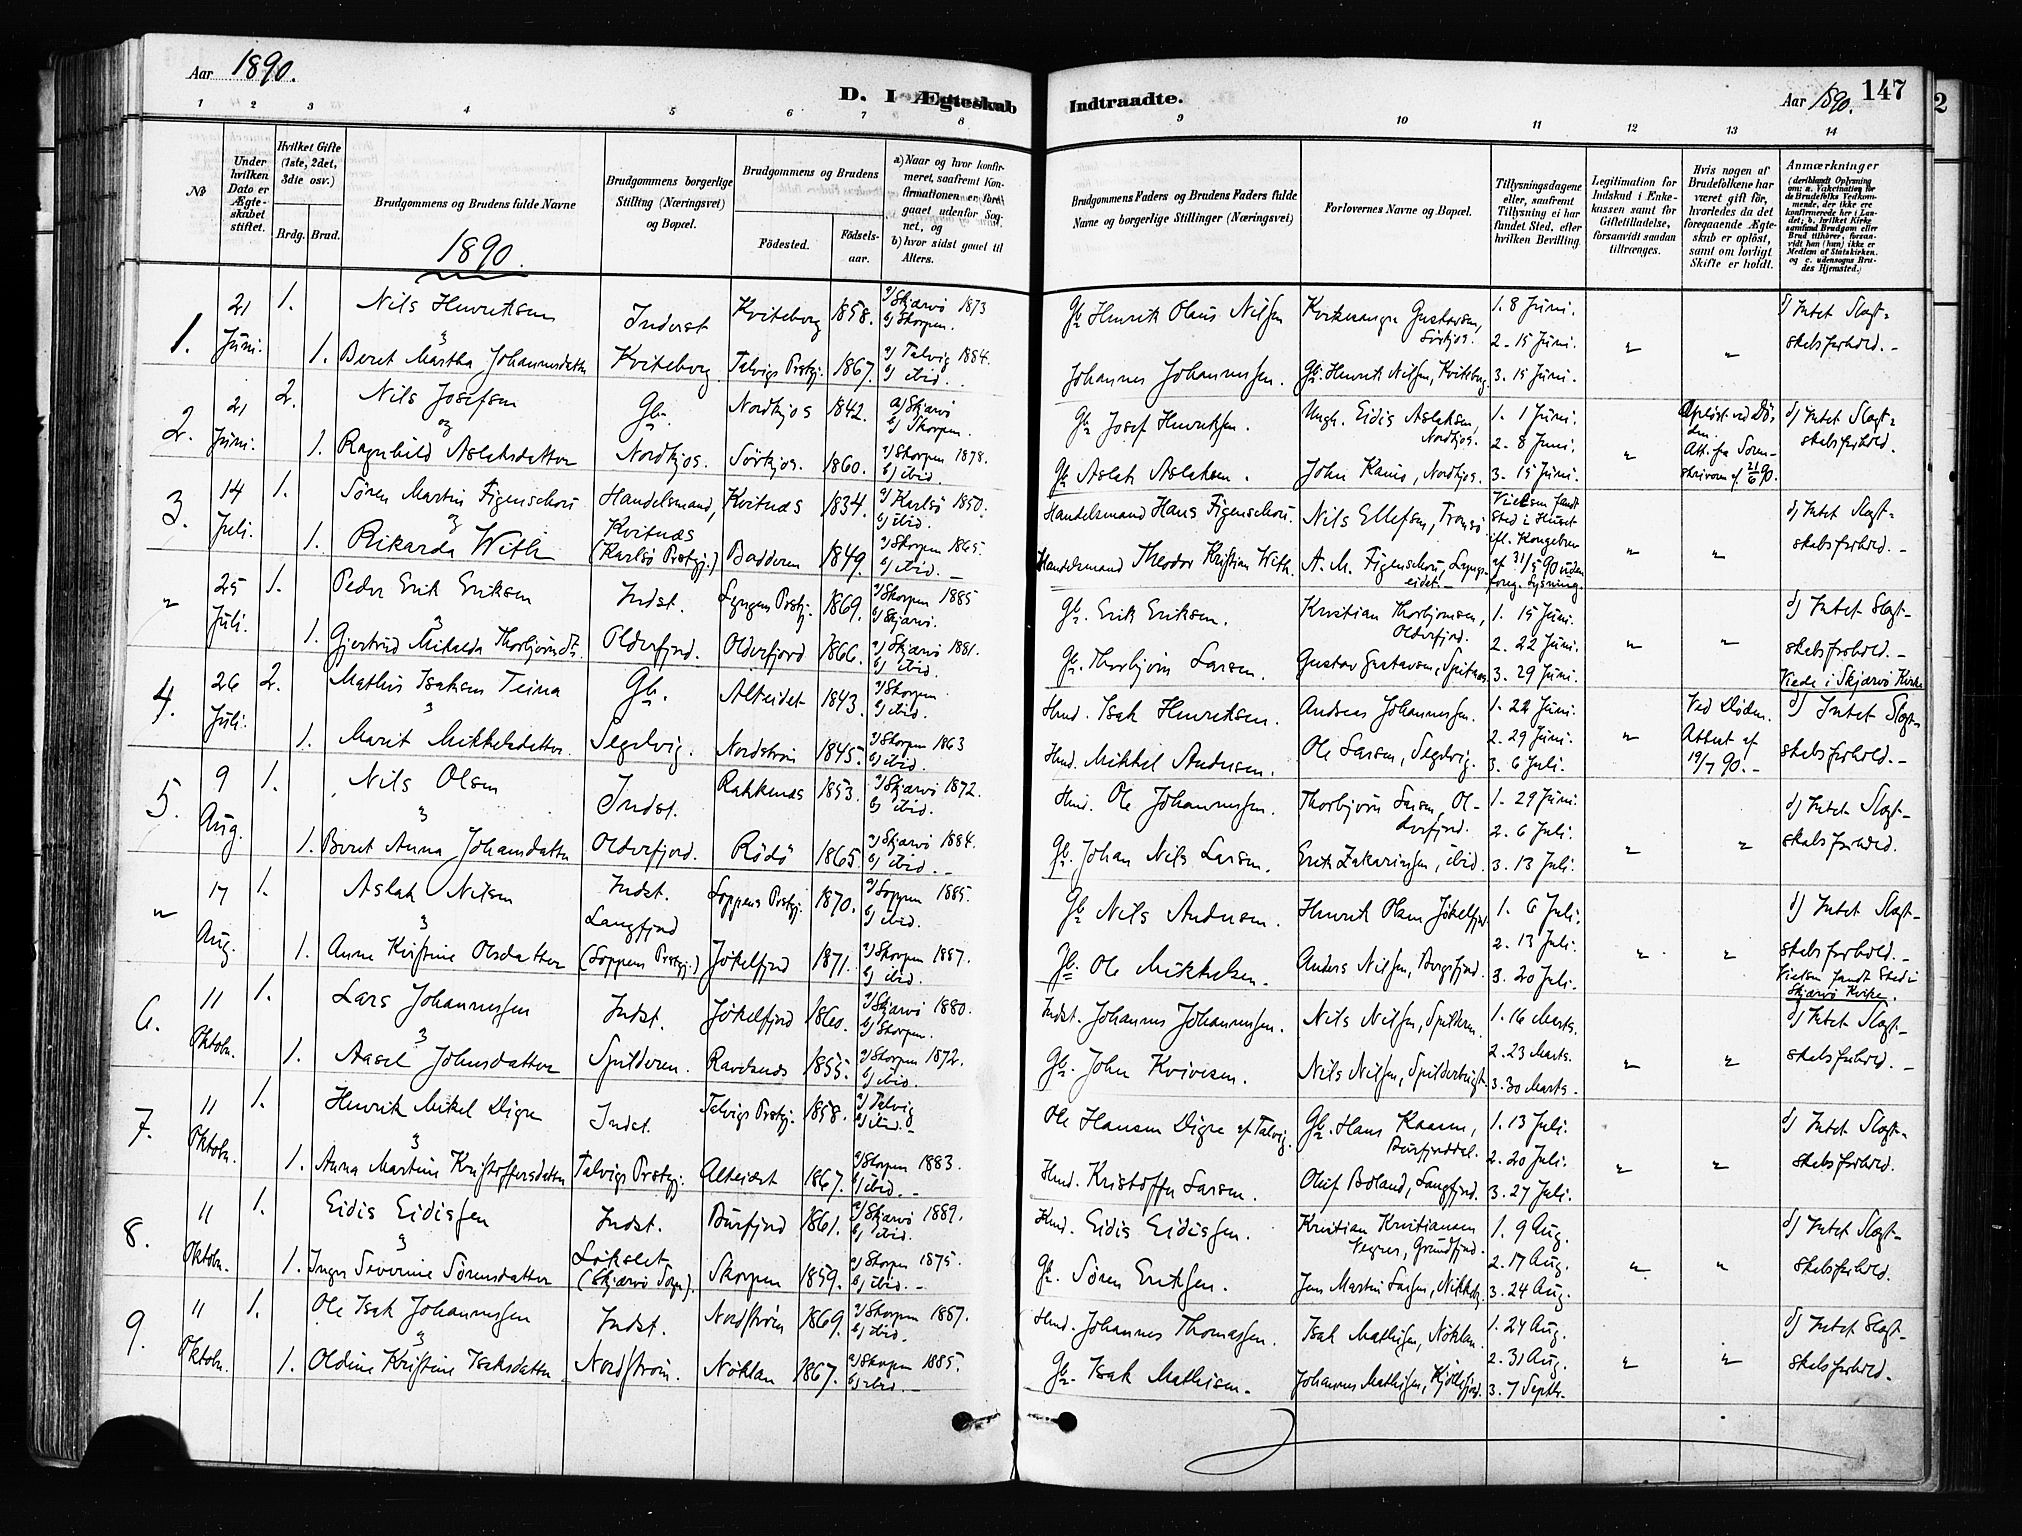 Aar 1890.
D. I Ægteskab
Indtraadte.
Aar 1890.
147
2
1 2 3 4 5 6 7 8 9 10 11 12 13 14
No
Under hvilken Dato er Ægteskabet stiftet.
Hvilket Gifte (1ste, 2det, 3die osv.)
Brdg. Brud.
Brudgommens og Brudens fulde Navne
Brudgommens borgerlige Stilling (Næringsvei) og Bopæl.
Brudgommens og Brudens
Fødested.
Fødselsaar.
a) Naar og hvor konfirmeret, saafremt Konfirmationen er foregaaet udenfor Sognet, og
b) hvor sidst gaaet til Alters.
Brudgommens Faders og Brudens Faders fulde Navne og borgerlige Stillinger (Næringsvei)
Forlovernes Navne og Bopæl.
Tillysningsdagene eller, saafremt Tillysning ei har fundet Sted, efter hvilken Bevilling.
Legitimation for Indskud i Enkekassen samt for Giftetilladelse, forsaavidt saadan tiltrænges.
Hvis nogen af Brudefolkene har været gift før, hvorledes da det foregaaende Ægteskab er opløst, samt om lovligt Skifte er holdt.
Anmærkninger
1890.
1. 21 Juni. 1. Nils Henriksen Inderst Kviteberg 1858. a) Skjærvö 1873 b) Skorpen. Gbr. Henrik Olaus Nilsen Gustavsen, Sörkjos. 1. 8 Juni. d) Intet Slegt-
1. Beret Martha Johannesdatter Kviteberg Talvigs Prstgj. 1867. a) Talvig 1884. b) ibid. Johannes Johannessen. Gbr. Henrik Nilsen, Kviteberg. 2. 15 Juni. 3. 15 Juni. skabsforhold.
2. 21 Juni. 2. Nils Josefsen Gbr. Nordkjos 1842. a) Skjærvö b) Skorpen. Gbr. Josef Henriksen. Ungk. Eidis Aslaksen, Nordkjos. 1. 1 Juni. Opløst ved Döden. d) Intet Slegt-
1. Ragnhild Aslaksdatter Nordkjos. Sörkjos. 1860. a) Skorpen 1878. b) ibid. Gbr. Aslak Aslaksen. John Nordkjos. 2. 8 Juni. 3. 15 Juni. Att. fra Sorenskriveren af 21/6 90. skabsforhold.
3. 14 Juli. 1. Sören Martin Figenschou Handelsmand, Kvitnæs 1834. a) Karlsö 1850. b) ibid. Handelsmand Hans Figenschou. Nils Ellefsen, Tromsö Vielsen fandt Sted i Huset d) Intet Slegt-
1. Rikarda With Kvitnæs (Karlsö Prstgj.) Badderen 1849. a) Skorpen 1865. b) ibid. Handelsmand Theodor Kristian With. A. M. Figenschou, Lyngseidet. ifl. Kongebrev af 31/5 90 uden foreg. Lysning. skabsforhold.
" 25 Juli. 1. Peder Erik Eriksen Indst. Lyngens Prstgj. 1869. a) Skorpen 1885 b) Skjærvö. Gbr. Erik Eriksen. Kristian Thorbjörnsen, Olderfjord. 1. 15 Juni. d) Intet Slegt-
1. Gjertrud Mikalda Thorbjörnsdtr. Olderfjord. Olderfjord 1866. a) Skjærvö 1881. b) ibid. Gbr. Thorbjörn Larsen. Gustav Gustavsen, 2. 22 Juni. 3. 29 Juni. skabsforhold. Viede i Skjærvö Kirke
4. 26 Juli. 2. Mathis Isaksen Teina Gbr. Alteidet 1843. a) Skorpen. b) ibid. Hmd. Isak Henriksen. Andreas Johannessen. 1. 22 Juni. Ved Döden. d) Intet Slegt-
1. Marit Mikkelsdatter Segelvig. Nordströn 1845. a) Skorpen 1863 b) ibid. Hmd. Mikkel Andersen. Ole Larsen, Segelvig. 2. 29 Juni. 3. 6 Juli. Attest af 19/7 90. skabsforhold.
5. 9 Aug. 1. Nils Olsen Indst. Rakkenæs 1853. a) Skjærvö 1872. b) ibid. Hmd. Ole Johannessen. Thorbjörn Larsen, Olderfjord. 1. 29 Juni. d) Intet Slegt-
1. Beret Anna Johansdatter Olderfjord. Rödö 1865. a) Skjærvö 1884. b) ibid. Gbr. Johan Nils Larsen. Erik Zakariassen, ibid. 2. 6 Juli. 3. 13 Juli. skabsforhold.
" 17 Aug. 1. Aslak Nilsen Indst. Loppens Prstgj. 1870. a) Loppen 1885. b) ibid. Gbr. Nils Andersen. Henrik Olsen Jökelfjord 1. 6 Juli. d) Intet Slegt-
1. Anne Kristine Olsdatter Langfjord (Loppens Prstgj.) Jökelfjord 1871. a) Skorpen 1887. b) ibid. Gbr. Ole Mikkelsen. Anders Nilsen, 2. 13 Juli. 3. 20 Juli. skabsforhold. Vielsen fandt Sted i Skjærvö Kirke.
6. 11 Oktobr. 1. Lars Johannessen Indst. Jökelfjord 1860. a) Skjærvö 1880. b) Skorpen. Indst. Johannes Johannessen. Nils Nilsen, Spilderen. 1. 16 Marts. d) Intet Slegt-
1. Aasel Johnsdatter Spilderen. 1855. a) Skorpen 1872. b) ibid. Gbr. John Nils Nilsen, 2. 23 Marts. 3. 30 Marts. skabsforhold.
7. 11 Oktobr. 1. Henrik Mikel Digre Indst. Talvigs Prstgj. 1858. a) Talvig b) ibid. Ole Hansen Digre af Talvig. Gbr. Hans Kaasen, Burfjorddal. 1. 13 Juli. d) Intet Slegt-
1. Anna Martine Kristoffersdatter Talvigs Prstgj. Alteidet 1867. a) Skorpen 1883. b) ibid. Hmd. Kristoffer Larsen. Oluf Boland, Langfjord. 2. 20 Juli. 3. 27 Juli. skabsforhold.
8. 11 Oktobr. 1. Eidis Eidissen Indst. Burfjord 1861. a) Skjærvö 1889. b) ibid. Hmd. Eidis Eidissen. Kristian Kristiansen Grundfjord. 1. 9 Aug. d) Intet Slegt-
1. Inger Severine Sörensdatter Lökslet (Skjærvö Sogn). Skorpen 1859. a) Skorpen 1875. b) ibid. Gbr. Sören Eriksen. Jens Martin Larsen, 2. 17 Aug. 3. 24 Aug. skabsforhold.
9. 11 Oktobr. 1. Ole Isak Johannessen Indst. Nordströn 1869. a) Skorpen 1887. b) ibid. Hmd. Johannes Thomassen. Isak Mathisen, Nöklan. 1. 24 Aug. d) Intet Slegt-
1. Oldine Kristine Isaksdatter Nordströn. Nöklan 1867. a) Skorpen 1885. b) ibid. Gbr. Isak Mathisen. Johannes Mathisen, 2. 31 Aug. 3. 7 Septbr. skabsforhold.